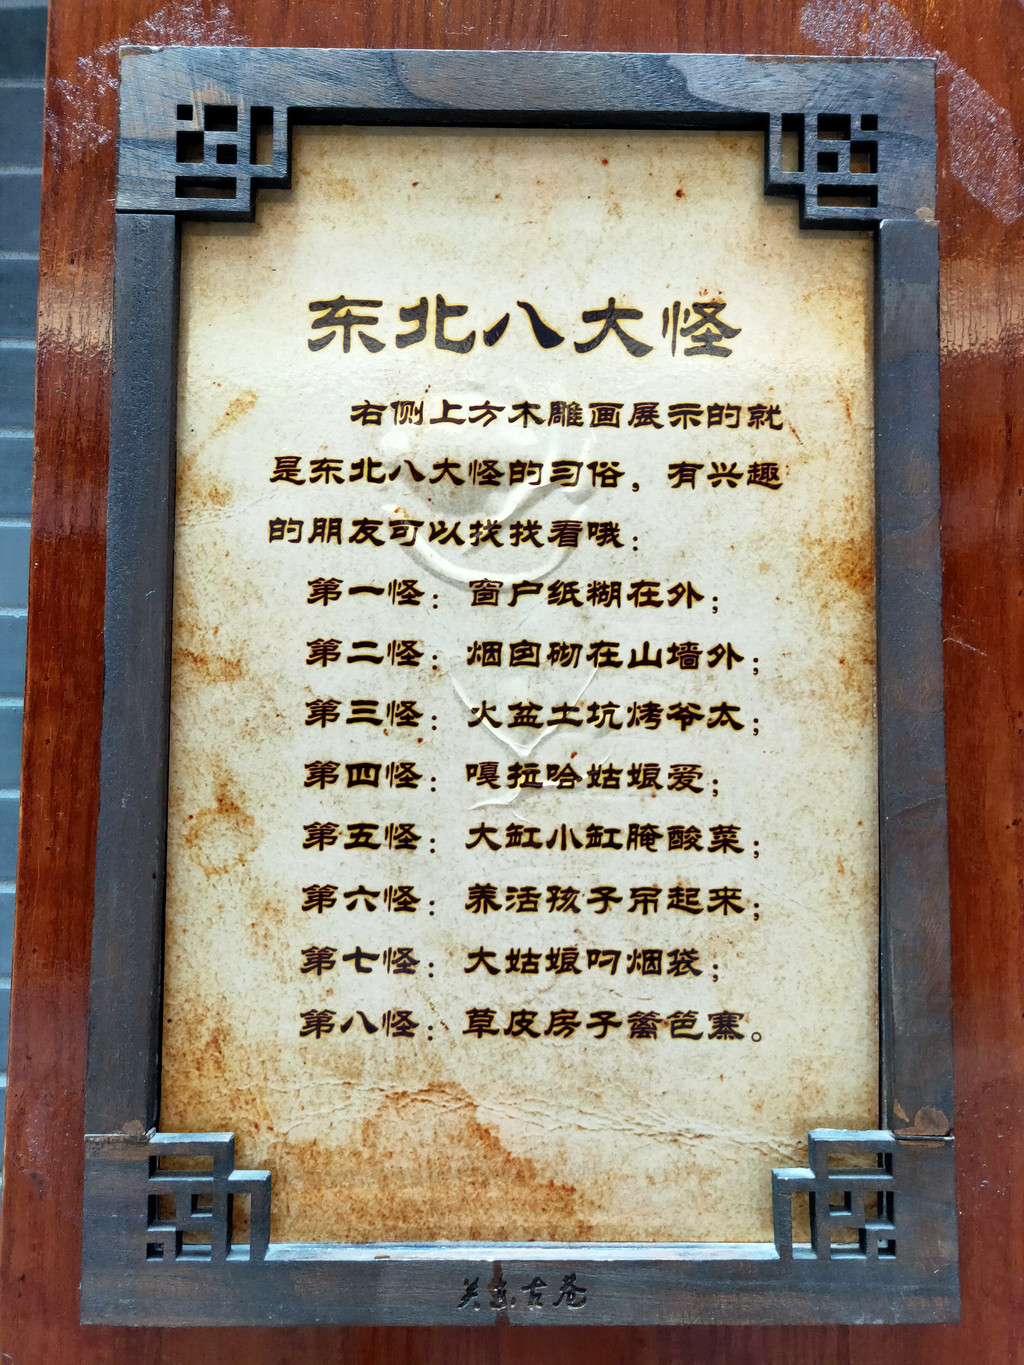 东北八大怪
右侧上方木雕画展示的就
是东北八大怪的习俗，有兴趣
的朋友可以找找看哦：
第一怪：窗户纸糊在外；
第二怪：烟囱砌在山墙外；
第三怪：火盆土坑烤爷太；
第四怪：嘎拉哈姑娘爱；
第五怪：大缸小缸腌酸菜；
第六怪：养活孩子吊起来；
第七怪：大姑娘叼烟袋；
第八怪：草皮房子篱笆寨。
关东古巷